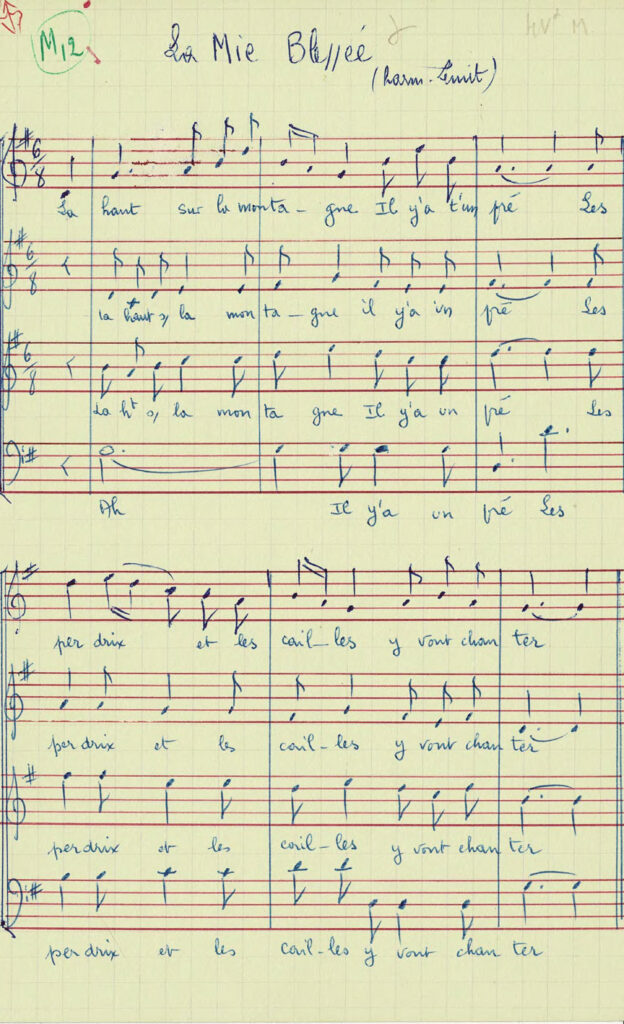 M12
La Mie Blessée
(harm.
6/8
La haut sur la monta - gne Il y'a t'un pré Les
6/8
la haut s/ la mon ta - gne il y'a un pré Les
6/8
La ht s/ la mon ta gne Il y'a un pré Les
Ah Il y'a un pré Les
per drix et les cail - les y vont chan ter
per drix et les cail - les y vont chan ter
per drix et les cail - les y vont chan ter
per drix et les cail - les y vont chan ter